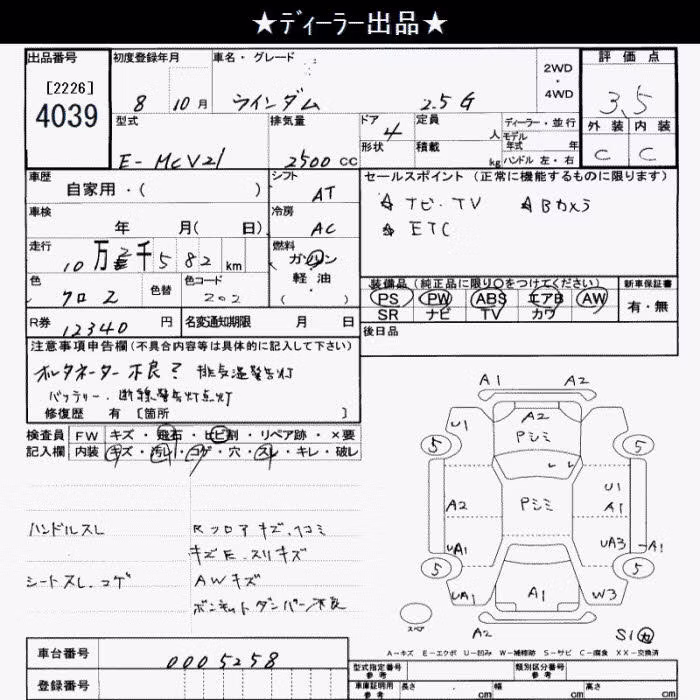 ★ディーラー出品★
出品番号 初度登録年月 車名・グレード 2WD・4WD 評価点
[2226]
4039 8 10月 ウインダム 2.5G 3.5
型式 排気量 ドア 4 定員 人 ディーラー・並行 外装 内装
形状 積載 kg モデル年式 年 ハンドル 左・右
E-MCV21 2500 CC C C
車歴 シフト セールスポイント (正常に機能するものに限ります)
自家用・( ) AT ☆ ナビ・TV ☆ Bカメラ
車検 年 月( 日) 冷房 AC ☆ ETC
走行 10万 千582 km 燃料 ガソリン・軽油・( )
装備品(純正品に限り○をつけてください) 新車保証書
色 クロ 2 色替 色コード 202 PS PW ABS エアB AW 有・無
SR ナビ TV カワ
R券 12340 円 名変通知期限 月 日 後日品
注意事項申告欄(不具合内容等は具体的に記入して下さい)
オルタネーター不良? 排気温警告灯
バッテリー・断線警告灯点灯
修復歴 有 [箇所 ]
検査員 FW キズ・飛石・ヒビ割・リペア跡・×要
記入欄 内装 キズ・汚レ・コゲ・穴・スレ・キレ・破レ
A1 A2
U1 A2
Pシミ
5 5
レ レ
U1
A2 Pシミ A1
UA1 UA3 A1
5 5
UA1 A1 W3
スペア A2 S1
ハンドルスレ Rフロアキズ、
キズE.スリキズ
シートスレ.コゲ AWキズ
ボンネットダンパー不良
A-キズ E-エクボ U-凹み W-補修跡 S-サビ C-腐食 XX-交換済
車台番号 0005258 型式指定番号 参考 類別区分番号 参考
登録番号 車庫証明用 参考 長さ cm 幅 cm 高さ cm